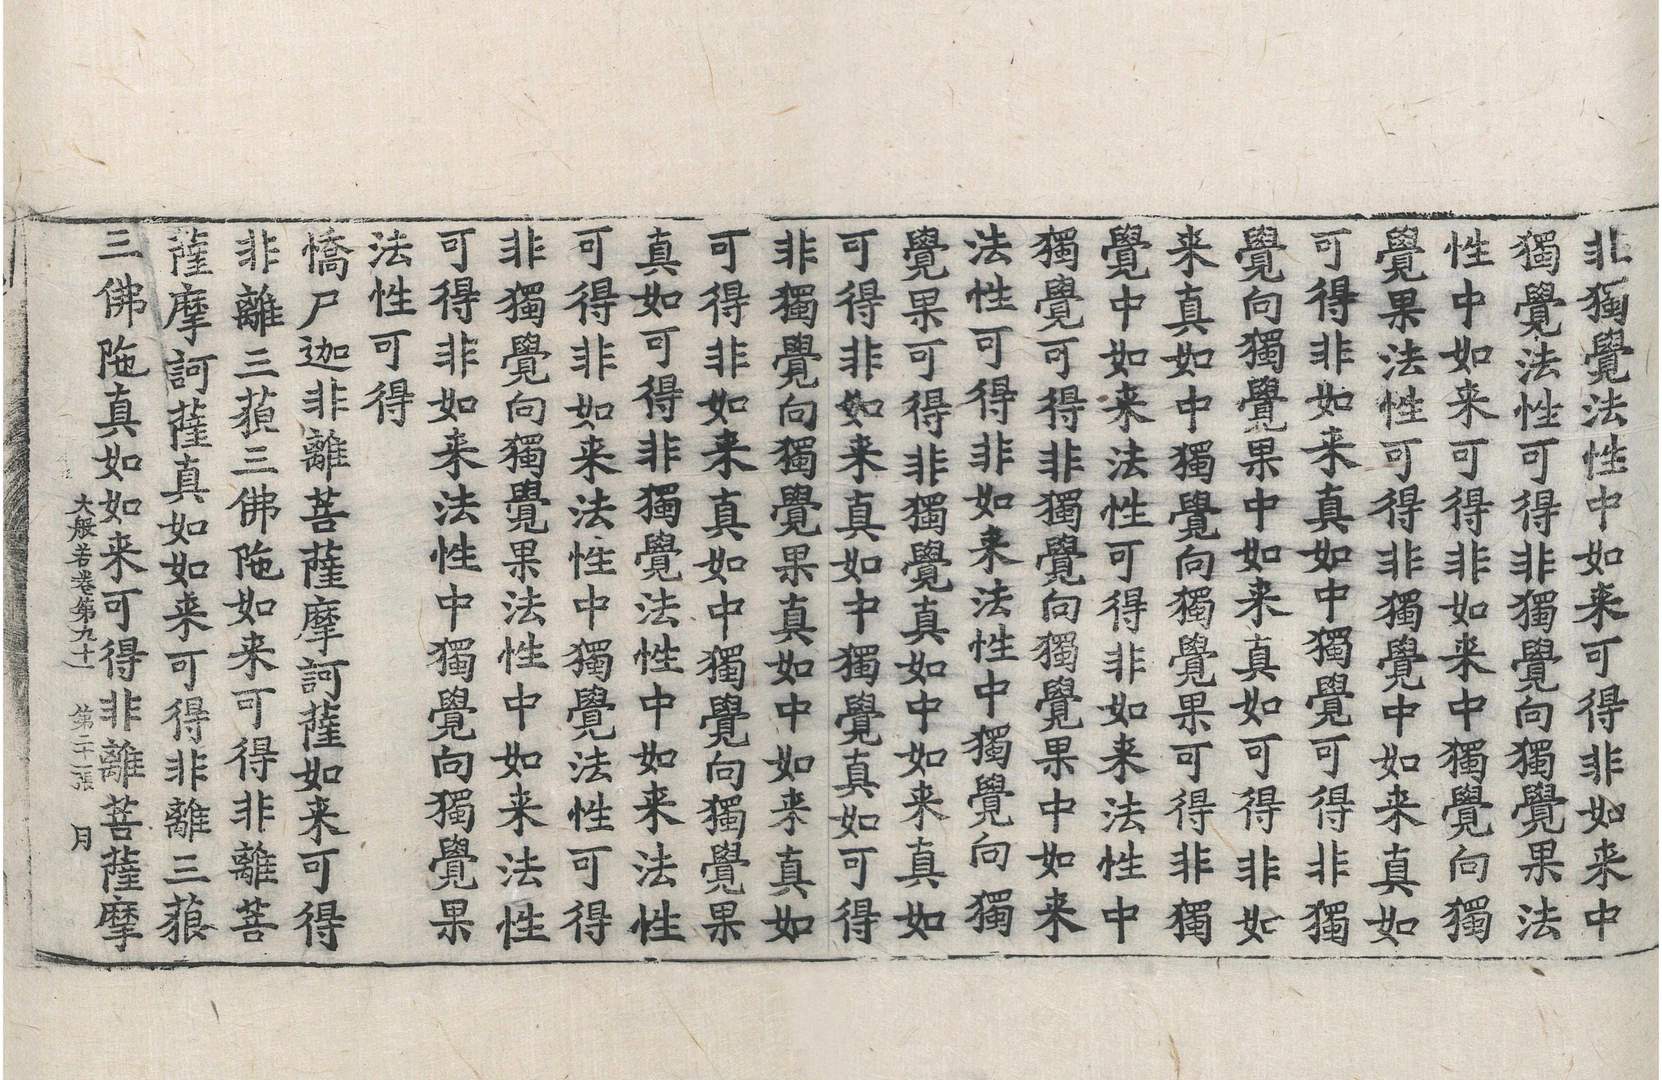 非獨覺法性中如来可得非如来中
獨覺法性可得非獨覺向獨覺果法
性中如来可得非如来中獨覺向獨
覺果法性可得非獨覺中如来真如
可得非如来真如中獨覺可得非獨
覺向獨覺果中如来真如可得非如
来真如中獨覺向獨覺果可得非獨
覺中如来法性可得非如来法性中
獨覺可得非獨覺向獨覺果中如来
法性可得非如来法性中獨覺向獨
覺果可得非獨覺真如中如来真如
可得非如来真如中獨覺真如可得
非獨覺向獨覺果真如中如来真如
可得非如来真如中獨覺向獨覺果
真如可得非獨覺法性中如来法性
可得非如来法性中獨覺法性可得
非獨覺向獨覺果法性中如来法性
可得非如来法性中獨覺向獨覺果
法性可得
憍尸迦非離菩薩摩訶薩如来可得
非離三藐三佛陁如来可得非離菩
薩摩訶薩真如如来可得非離三藐
三佛陁真如如来可得非離菩薩摩
大般若卷第九十一 第二十一張 月